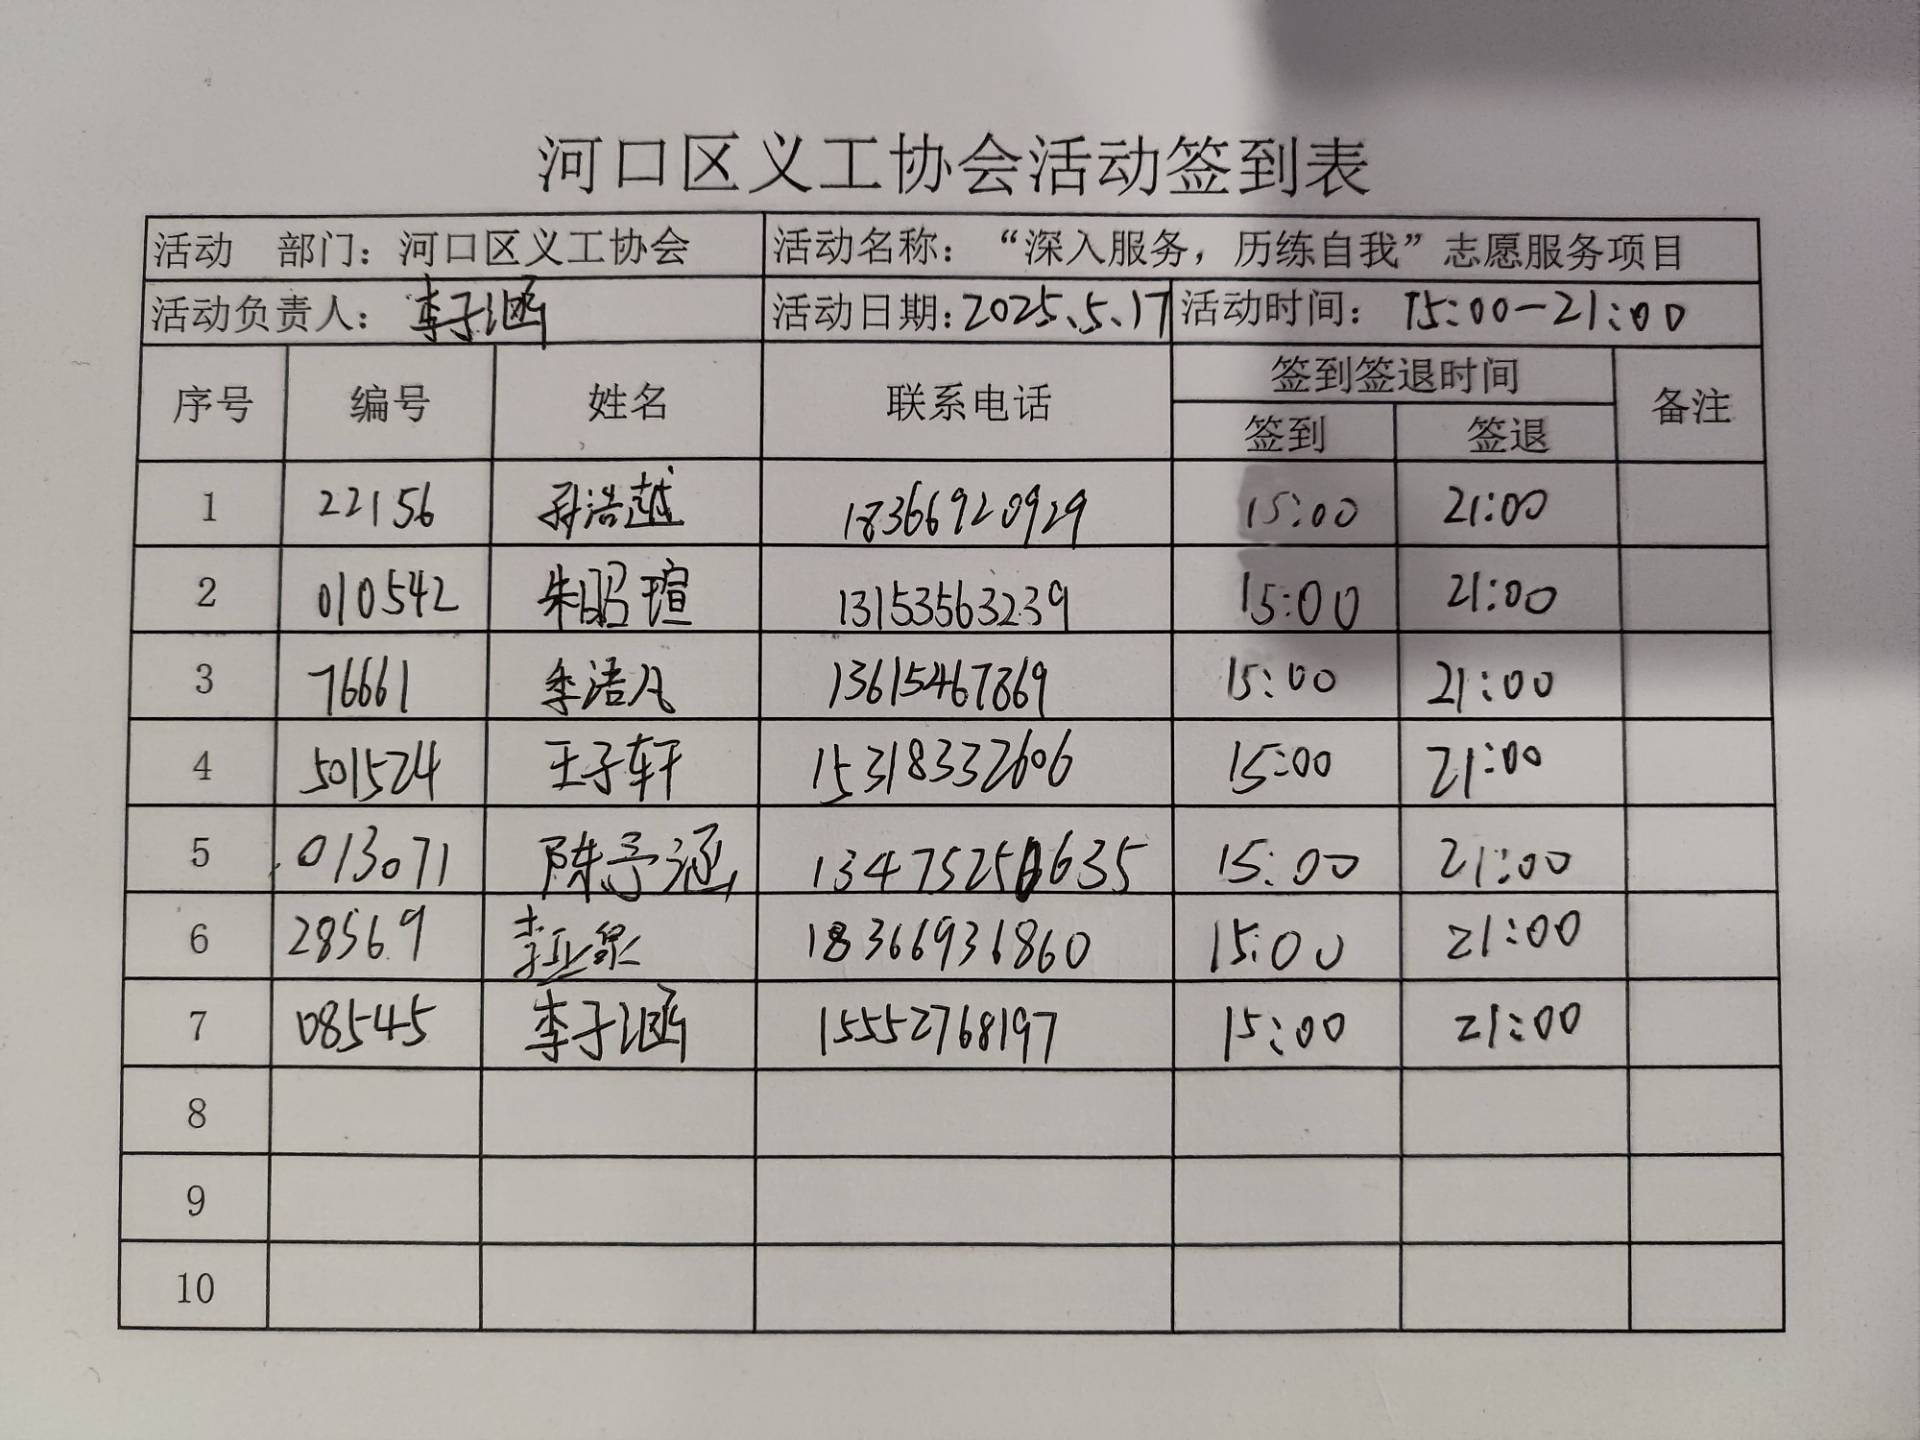 河口区义工协会活动签到表
活动 部门：河口区义工协会 活动名称：“深入服务，历练自我”志愿服务项目
活动负责人：李子涵 活动日期：2025.5.17 活动时间：15:00-21:00
序号 编号 姓名 联系电话 签到签退时间 备注
签到 签退
1 22156 孙浩越 18366920929 15:00 21:00
2 010542 朱昭瑄 13153563239 15:00 21:00
3 76661 李浩凡 13615467869 15:00 21:00
4 501524 王子轩 15318332606 15:00 21:00
5 013071 陈予涵 15:00 21:00
6 28569 18366931860 15:00 21:00
7 08545 李子涵 15552768197 15:00 21:00
8
9
10